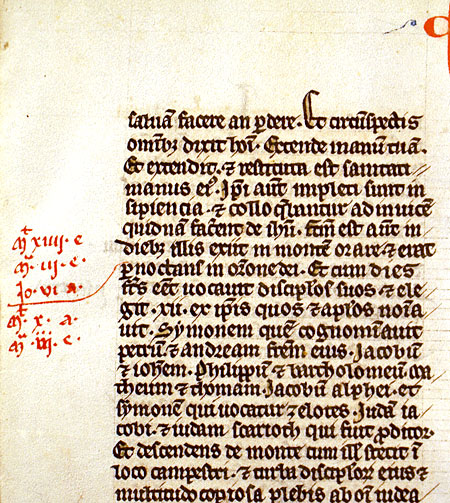 saluā facere an ꝑdere. Et circūspectis
omnibꝫ dixit hoī. Extende manum tuā.
Et extendit. ⁊ restituta est sanitati
manus eiꝰ. Ip̄i aut̄ impleti sunt in
sipiencia. ⁊ colloq̄bant᷑ ad inuicē
quidnam facēent de ih̄u. fcm̄ est aut̄ in
diebꝫ illis exiit in montē orare ⁊ erat
ꝑnoctans in or̄one dei. Et cum dies
fc̄s eēt uocauit disciplos suos ⁊ ele
git .xii. ex ip̄is quos ⁊ ap̄los noīa
uit. Symonem quē cognominauit
petrū ⁊ andream fr̄em eius. Jacobū
⁊ ioh̄em. Philippū ⁊ bartholomeū ma
theum ⁊ thomam. Jacobū alphei. et
symonē qui uocatur zelotes. Judā ia
cobi. ⁊ iudam scarioth qui fuit ꝓditor.
Et descendens de monte cum ill̄ stetit ī
loco campestri. ⁊ turba disciploꝝ eius ⁊
multitudo copiosa plebis ab oī iudea
M͛ xiiii. c
M͛ iii. c.
Io. vi a.
M͛ x. a.
M͛ iii. c.